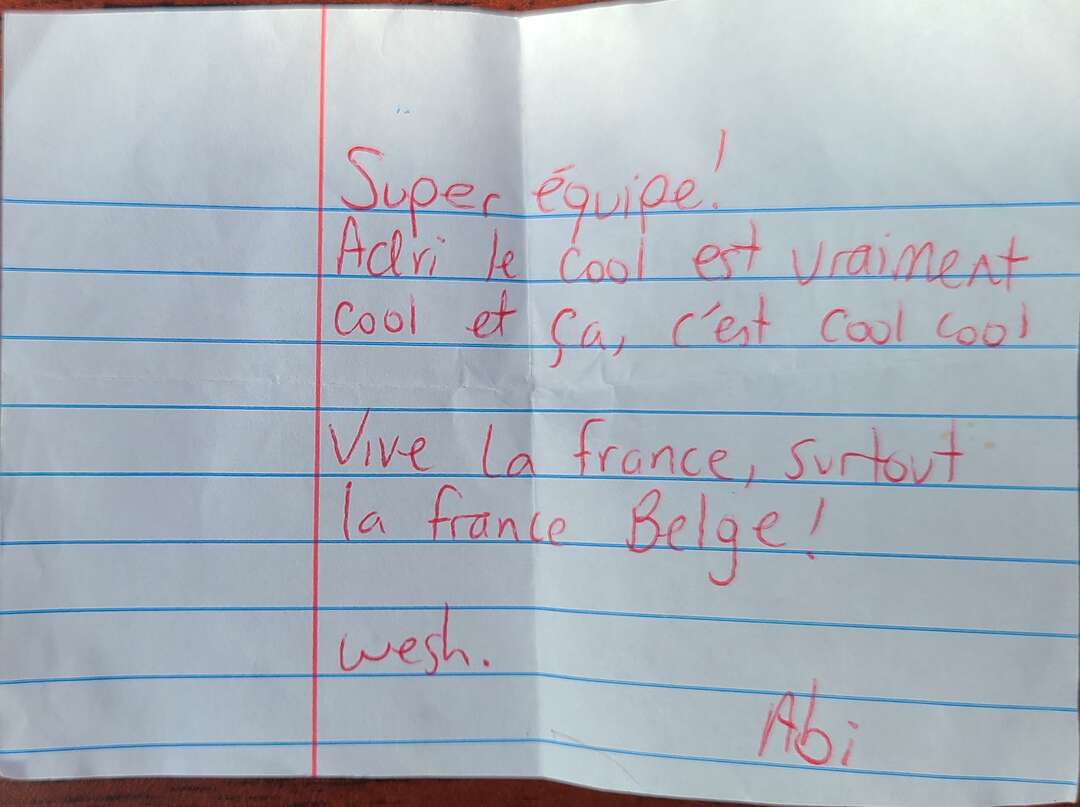 Super équipe!
Adri le cool est vraiment
cool et ça, c'est cool cool
Vive la france, surtout
la france Belge!
wesh.
Abi